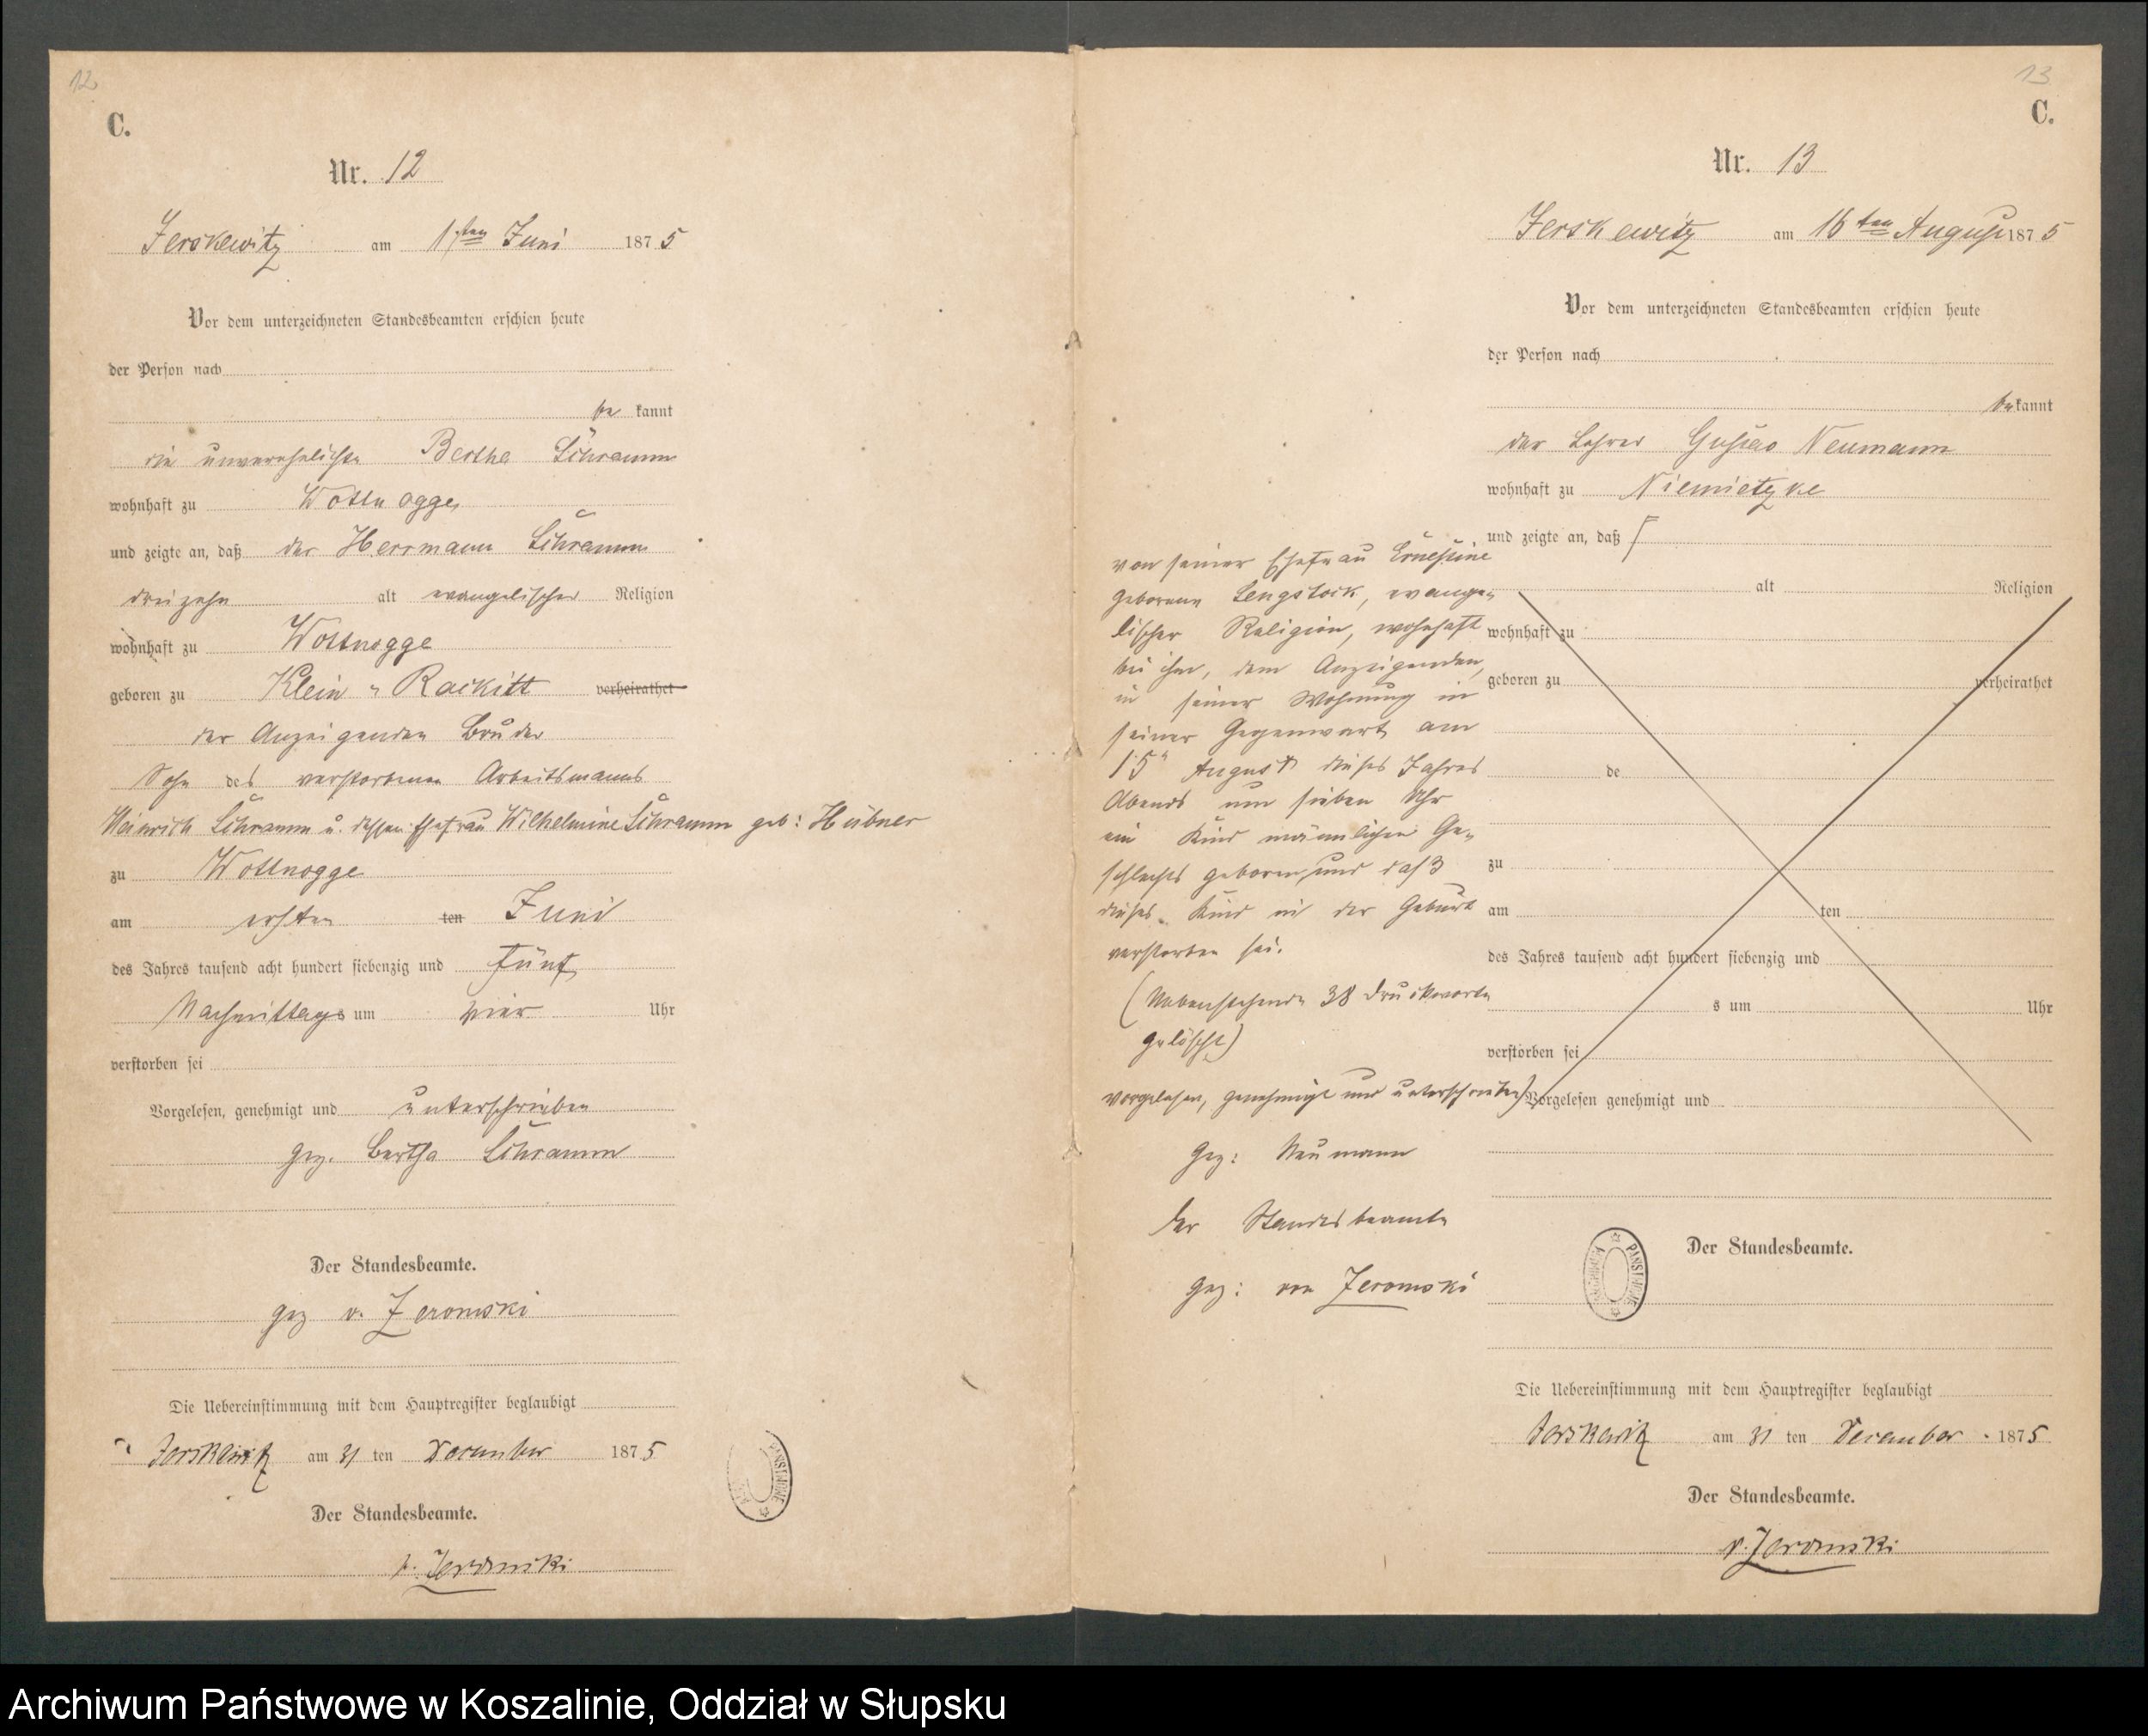 12
C.
Nr. 12
Jerskewitz am 1ten Juni 1875
Vor dem unterzeichneten Standesbeamten erschien heute
der Person nach
be kannt
die unverehelichte Bertha Schramm
wohnhaft zu Wottnogge,
und zeigte an, daß der Herrmann Schramm
dreizehn alt evangelischer Religion
wohnhaft zu Wottnogge
geboren zu Klein - Rackitt verheirathet
der Anzeigenden Bruder
Sohn des verstorbenen Arbeitsmanns
Heinrich Schramm u. dessen Ehefrau Wilhelmine Schramm geb: Hübner
zu Wottnogge
am ersten ten Juni
des Jahres tausend acht hundert siebenzig und fünf
Nachmittags um vier Uhr
verstorben sei
Vorgelesen, genehmigt und unterschrieben
gez. Bertha Schramm
Der Standesbeamte.
gez v. Zeromski
Die Uebereinstimmung mit dem Hauptregister beglaubigt
Jerskewitz am 31 ten December 1875
Der Standesbeamte.
v. Zeromski
PANSTWOWE
13
C.
Nr. 13
Jerskewitz am 16ten August 1875
Vor dem unterzeichneten Standesbeamten erschien heute
der Person nach
bekannt
der Lehrer Gustav Neumann
wohnhaft zu Niemietzke
und zeigte an, daß
alt Religion
wohnhaft zu
geboren zu verheirathet
de
zu
am ten
des Jahres tausend acht hundert siebenzig und
s um Uhr
verstorben sei
Vorgelesen genehmigt und
von seiner Ehefrau Ernestine
geborenen Lengstock, evange-
lischer Religion, wohnhaft
bei ihm, dem Anzeigenden,
in seiner Wohnung in
seiner Gegenwart am
15n August dieses Jahres
Abends um sieben Uhr
ein Kind männlichen Ge-
schlechts geboren, und daß
dieses Kind in der Geburt
verstorben sei.
(Nebenstehende 38 Druckworte
gelöscht)
vorgelesen, genehmigt und unterschrieben
gez: Neumann
Der Standesbeamte
gez: von Zeromski
Der Standesbeamte.
ARCHIWUM PANSTWOWE
Die Uebereinstimmung mit dem Hauptregister beglaubigt
Jerskewitz am 31 ten December 1875
Der Standesbeamte.
v. Zeromski
Archiwum Państwowe w Koszalinie, Oddział w Słupsku